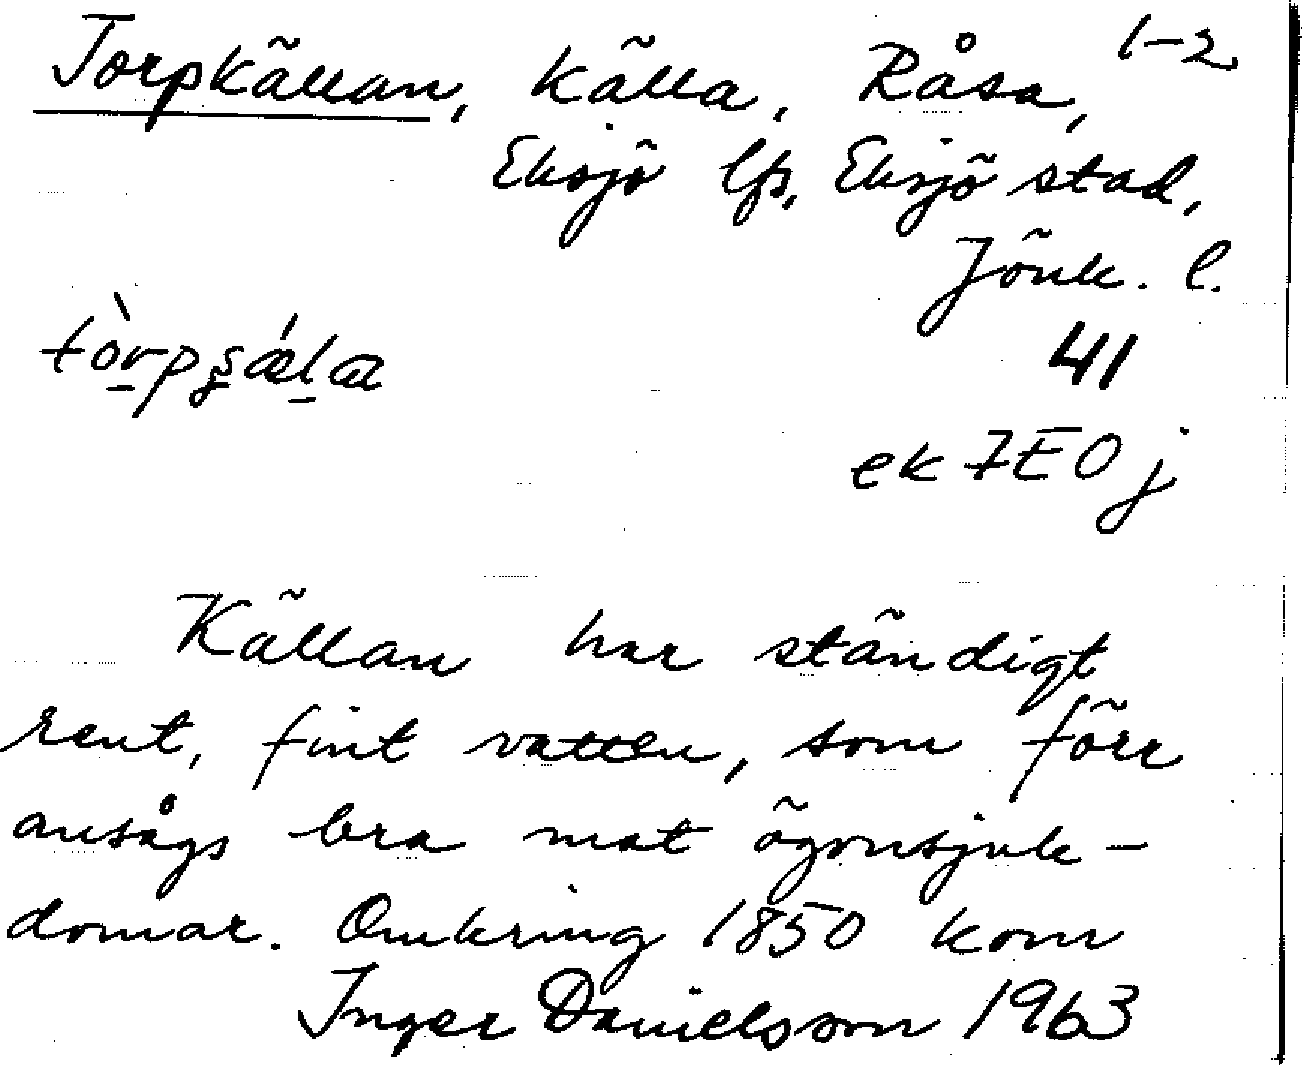 1-2
Torpkällan, källa, Råsa,
Eksjö lfs, Eksjö stad,
Jönk. l.
41
ek 7E0j
Källan har ständigt
rent, fint vatten, som förr
ansågs bra mot ögonsjuk-
domar. Omkring 1850 kom
Inger Danielsson 1963